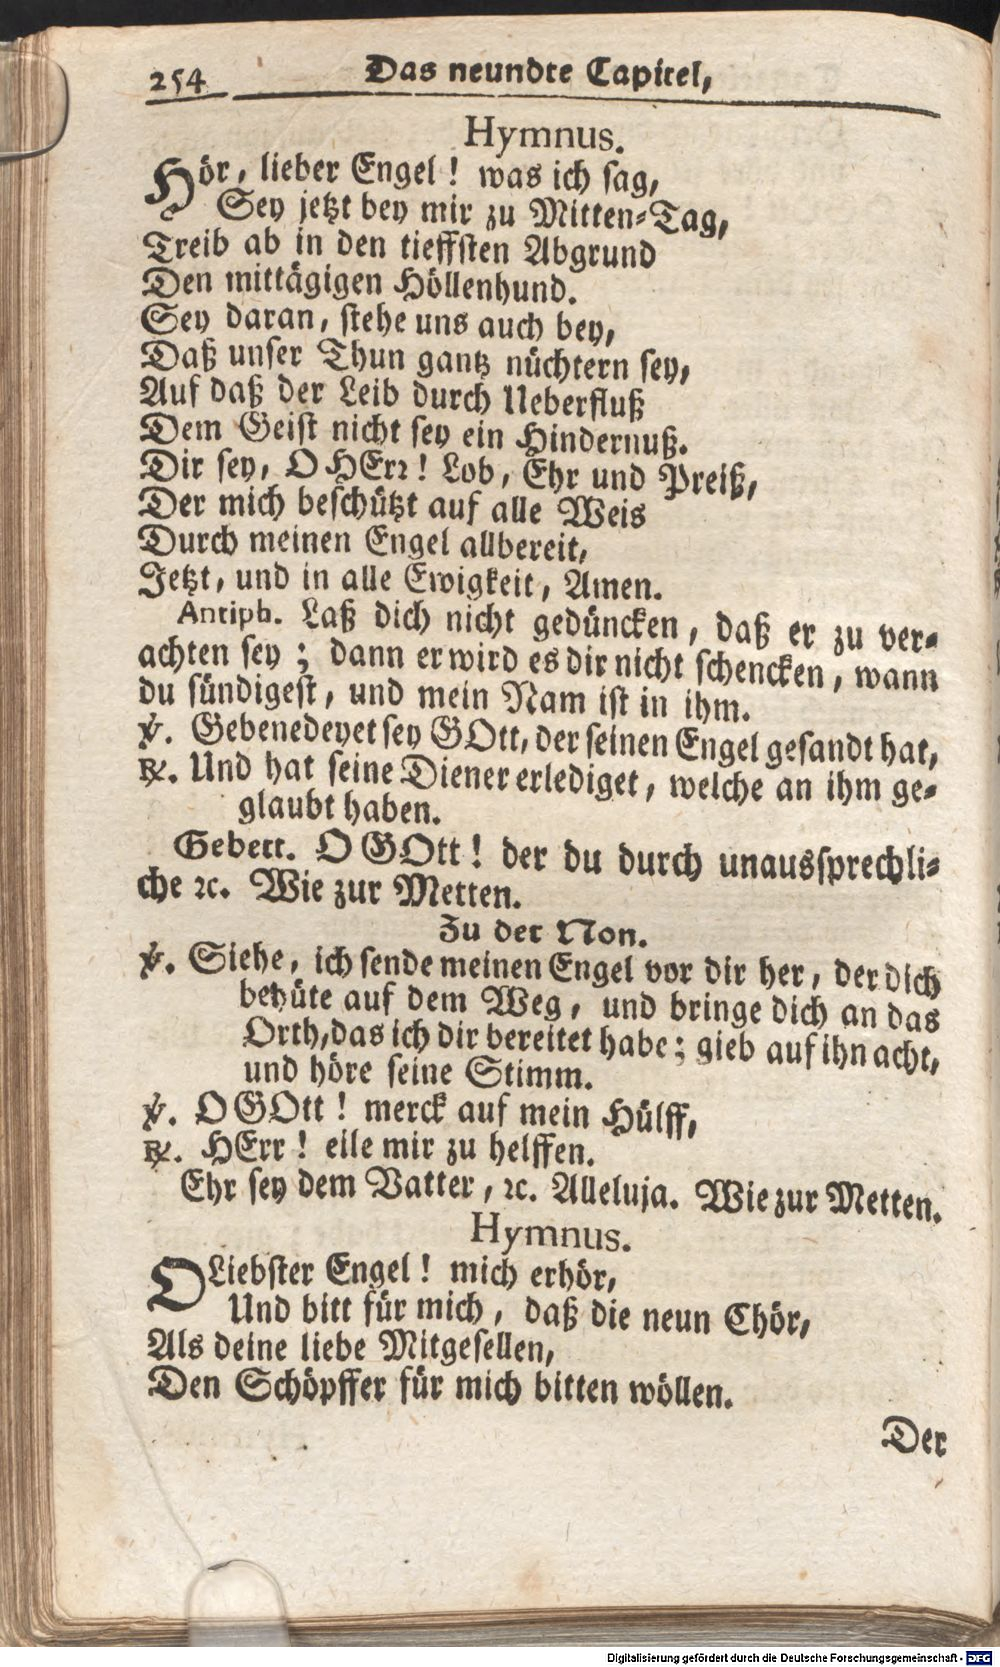 254 Das neundte Capitel,
Hymnus.
Hör, lieber Engel! was ich sag,
Sey jetzt bey mir zu Mitten-Tag,
Treib ab in den tieffsten Abgrund
Den mittägigen Höllenhund.
Sey daran, stehe uns auch bey,
Daß unser Thun gantz nüchtern sey,
Auf daß der Leib durch Ueberfluß
Dem Geist nicht sey ein Hindernuß.
Dir sey, O HErr! Lob, Ehr und Preiß,
Der mich beschützt auf alle Weis
Durch meinen Engel allbereit,
Jetzt, und in alle Ewigkeit, Amen.
Antiph. Laß dich nicht gedüncken, daß er zu ver-
achten sey; dann er wird es dir nicht schencken, wann
du sündigest, und mein Nam ist in ihm.
℣. Gebenedeyet sey GOtt, der seinen Engel gesandt hat,
℟. Und hat seine Diener erlediget, welche an ihm ge-
glaubt haben.
Gebett. O GOtt! der du durch unaussprechli-
che ꝛc. Wie zur Metten.
Zu der Non.
℣. Siehe, ich sende meinen Engel vor dir her, der dich
behüte auf dem Weg, und bringe dich an das
Orth, das ich dir bereitet habe; gieb auf ihn acht,
und höre seine Stimm.
℣. O GOtt! merck auf mein Hülff,
℟. HErr! eile mir zu helffen.
Ehr sey dem Vatter, ꝛc. Alleluja. Wie zur Metten.
Hymnus.
O Liebster Engel! mich erhör,
Und bitt für mich, daß die neun Chör,
Als deine liebe Mitgesellen,
Den Schöpffer für mich bitten wöllen.
Der
Digitalisierung gefördert durch die Deutsche Forschungsgemeinschaft - DFG